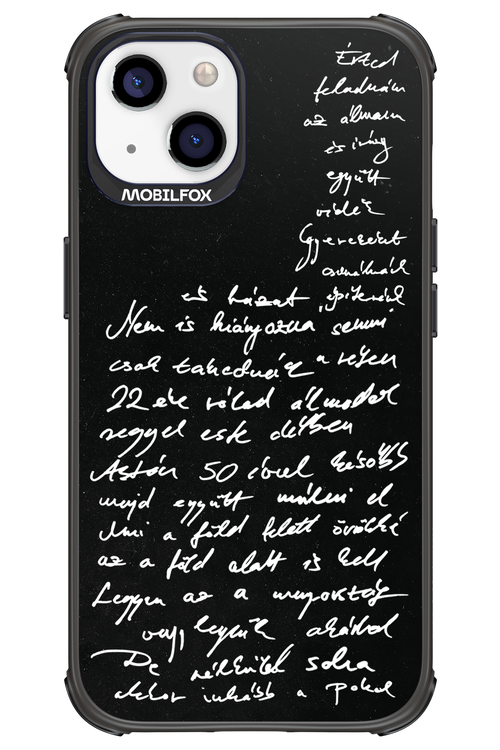 MOBILFOX
Érted
feladnám
az álmom
és irány
együtt
vidék
Gyerekeket
csinálnánk
és házat építenénk
Nem is hiányozna semmi
csak takednék a
22 éve rólad álmodok
reggel este délben
Aztán 50 évvel később
majd együtt múlni el
Ami a föld felett örökké
az a föld alatt is kell
Legyen az a mennyország
vagy legyünk akárhol
De nélküled soha
akkor inkább a pokol